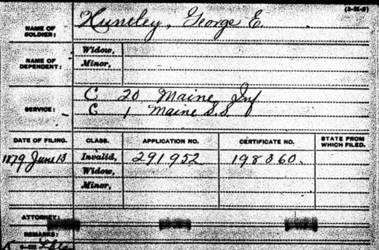 (3-111-8)
NAME OF SOLDIER: Huntley, George E.
NAME OF DEPENDENT: Widow,
Minor,
SERVICE: C 20 Maine Inf
C 1 Maine S.S.
DATE OF FILING. CLASS. APPLICATION NO. CERTIFICATE NO. STATE FROM WHICH FILED.
1879 June 13 Invalid, 291952 198360.
Widow,
Minor,
ATTORNEY:
REMARKS: